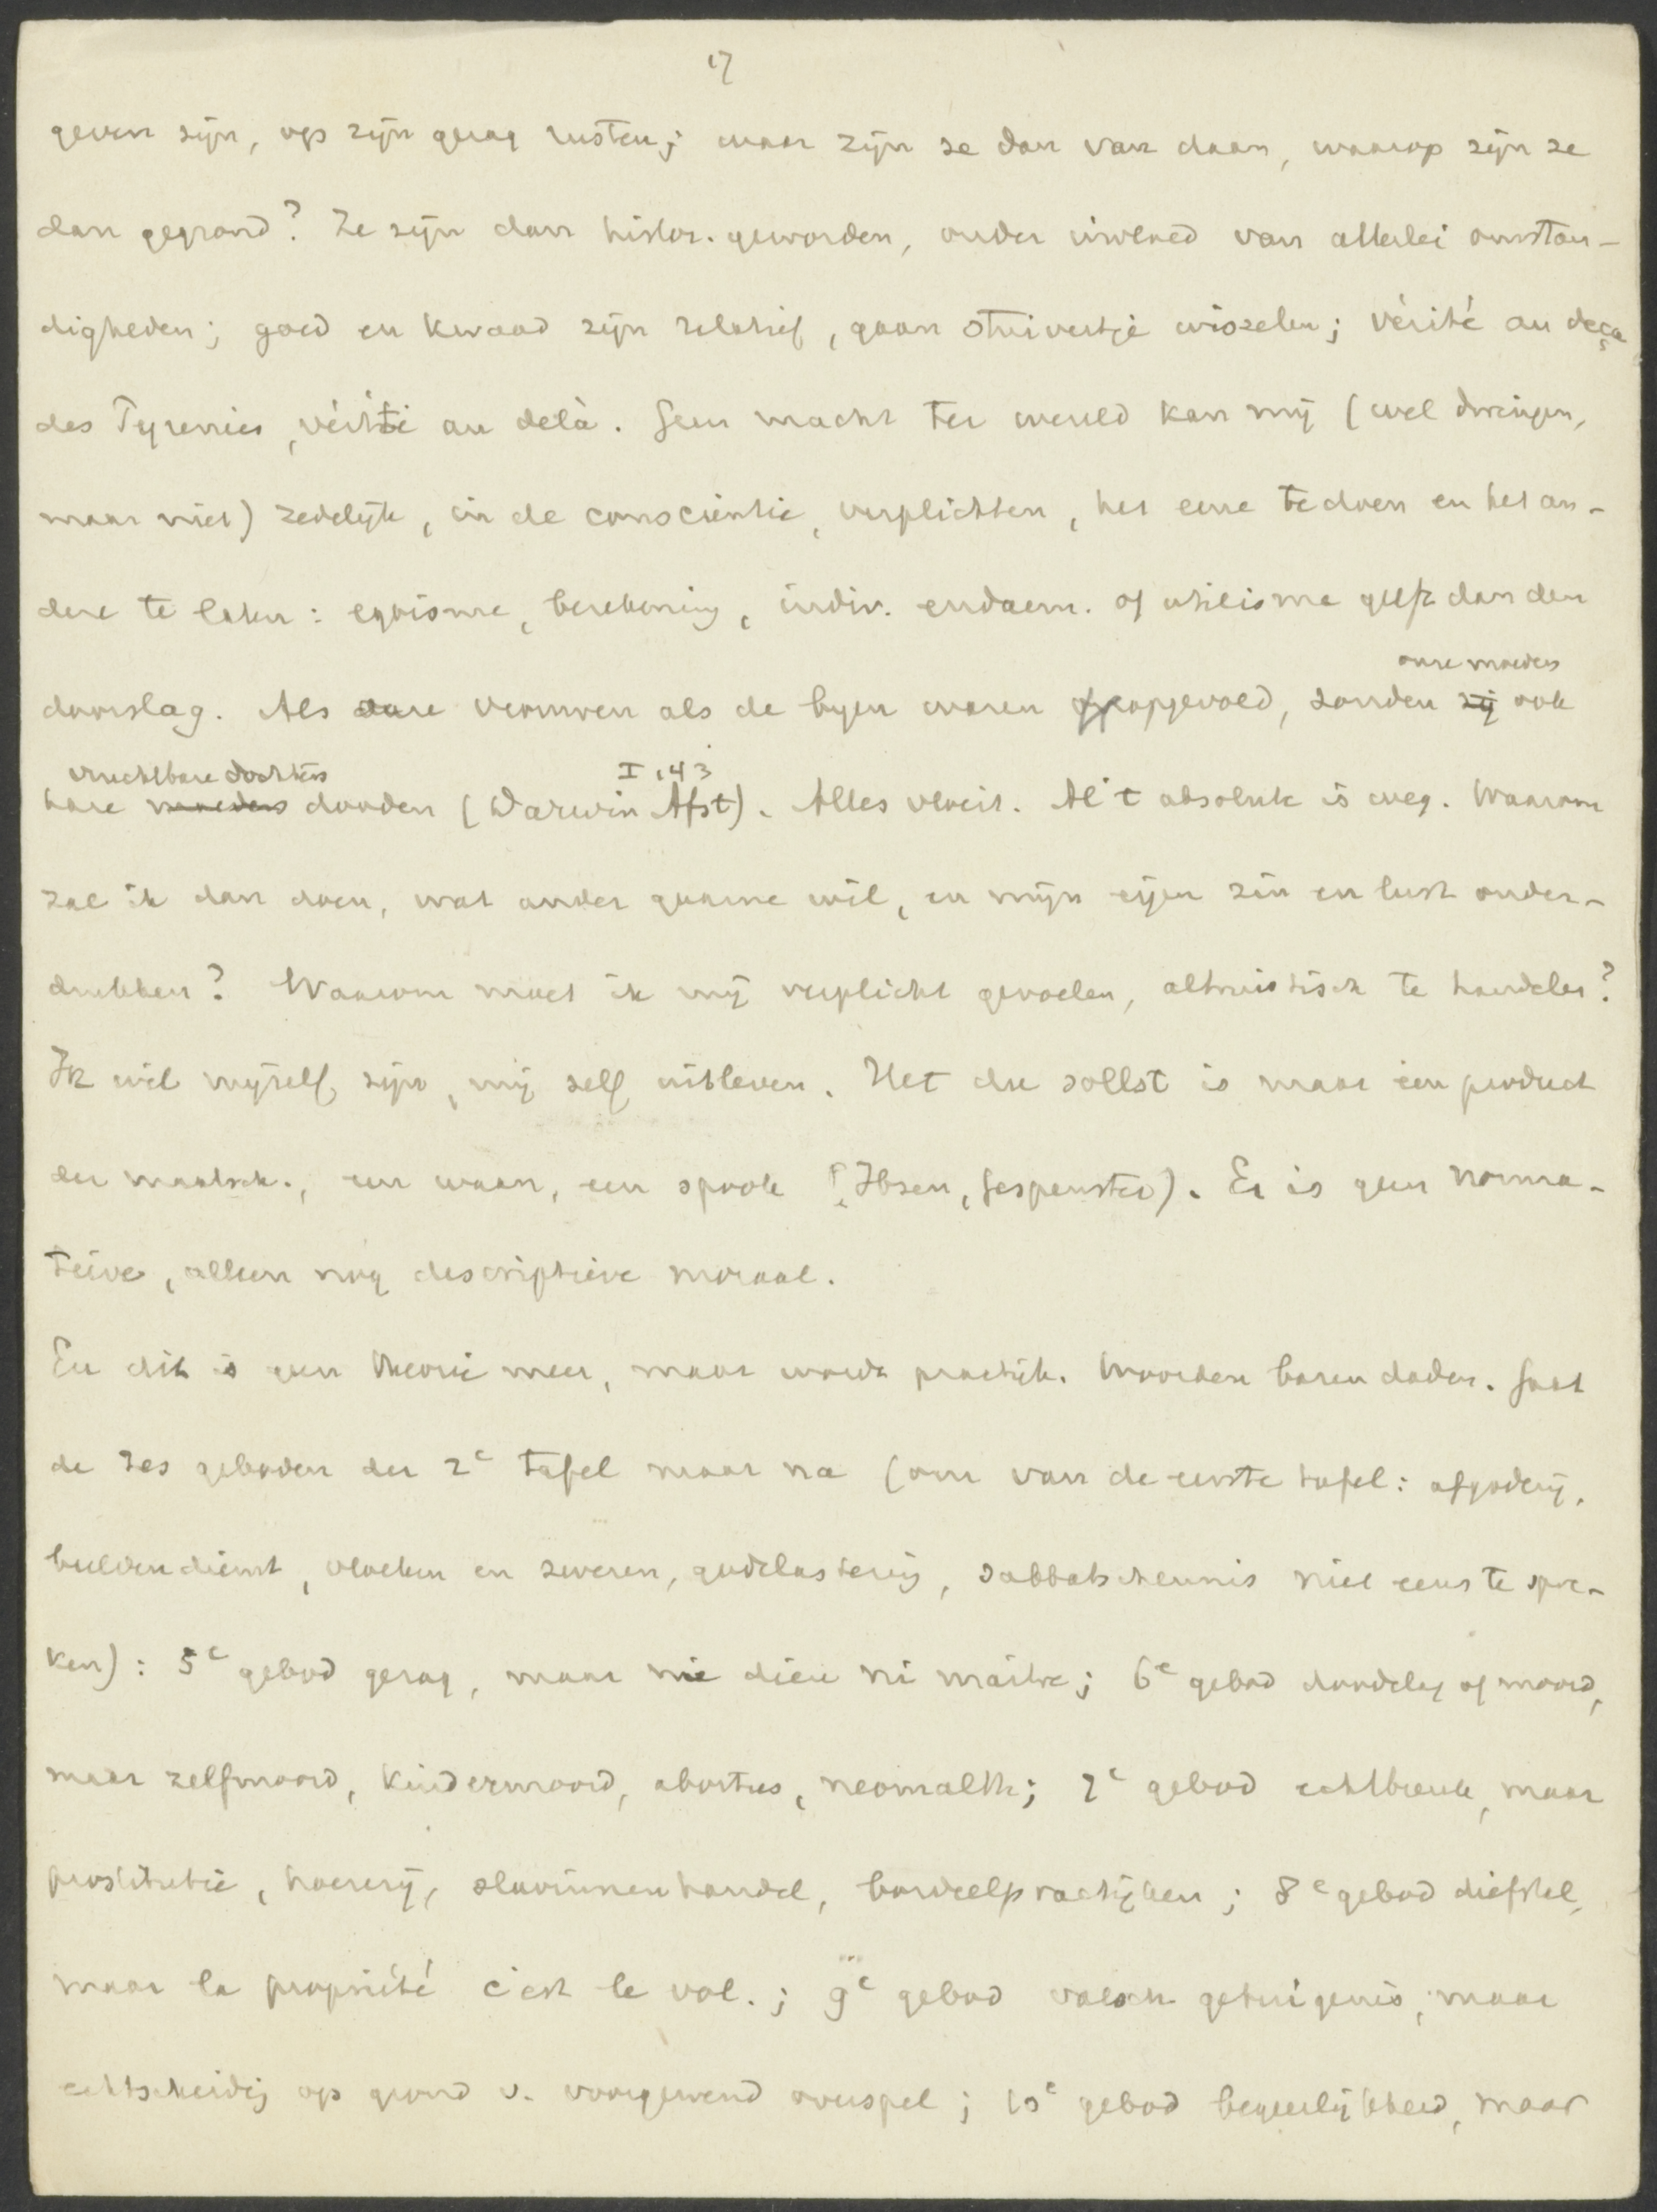 17
geven zijn, op zijn gezag rusten; waar zijn ze dan van daan, waarop zijn ze
dan gegrond? Ze zijn dan histor. geworden, onder invloed van allerlei omstan-
digheden; goed en kwaad zijn relatief, gaan stuivertje wisselen; vérité au deça
des Pyrenées, vérité au delà. Geen macht ter wereld kan mij (wel dwingen,
maar niet) zedelijk, in de conscientie, verplichten, het eene te doen en het an-
dere te laten: egoisme, berekening, indiv. eudaem. of utilisme geeft dan den
onze moeders
doorslag. Als onze vrouwen als de bijen waren opgevoed, zouden zij ook
vruchtbare dochters I 143
hare moeders dooden (Darwin Afst). Alles vloeit. Al 't absolute is weg. Waarom
zal ik dan doen, wat ander gaarne wil, en mijn eijen zin en lust onder-
drukken? Waarom moet ik mij verplicht gevoelen, altruistisch te handelen?
Ik wil mijzelf zijn, mij zelf uitleven. Het du sollst is maar een product
der maatsch., een waan, een spook (Ibsen, Gespenster). Er is geen norma-
tieve, alleen nog descriptieve moraal.
En dit is geen theorie meer, maar wordt practijk. Woorden baren daden. Gaat
de zes geboden der 2e tafel maar na (om van de eerste tafel: afgoderij,
beeldendienst, vloeken en zweren, godslastering, sabbatschennis niet eens te spre-
ken): 5e gebod gezag, maar ni dieu ni maître; 6e gebod doodslag of moord,
maar zelfmoord, kindermoord, abortus, neomalth; 7e gebod echtbreuk, maar
prostitutie, hoererij, slavinnenhandel, bordeelpractijken; 8e gebod diefstal,
maar la propriété c'est le vol.; 9e gebod valsch getuigenis, maar
echtscheidg op grond v. voorgewend overspel; 10e gebod begeerlijkheid, maar